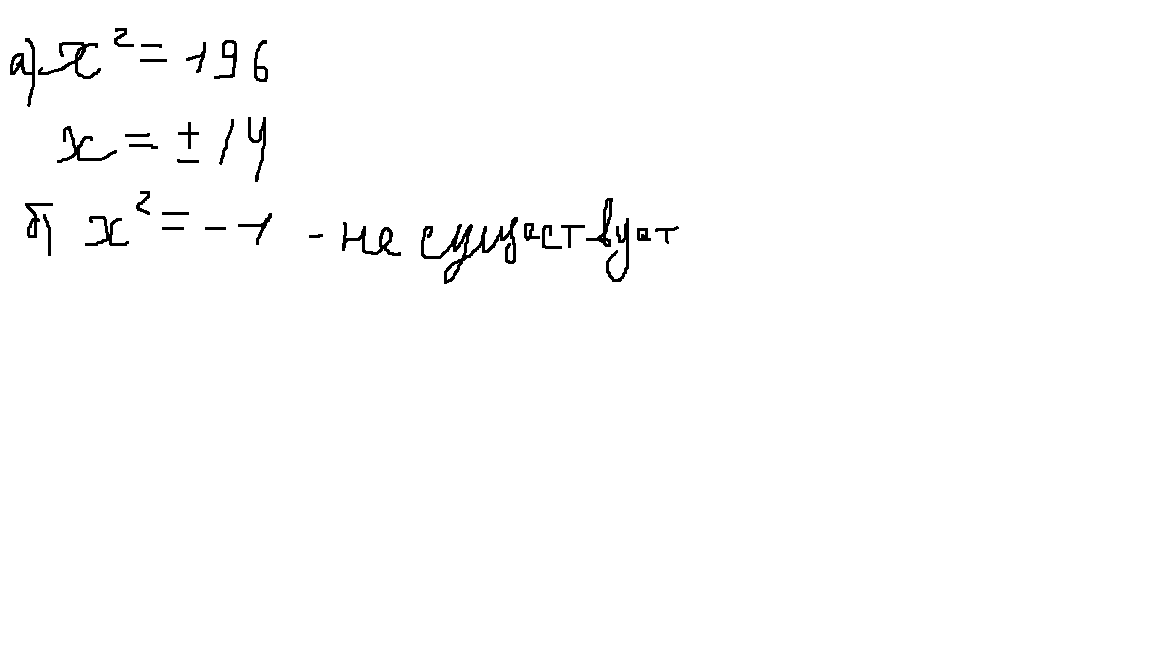 а) x² = 196
x = ± 14
б) x² = - 1 - не существует